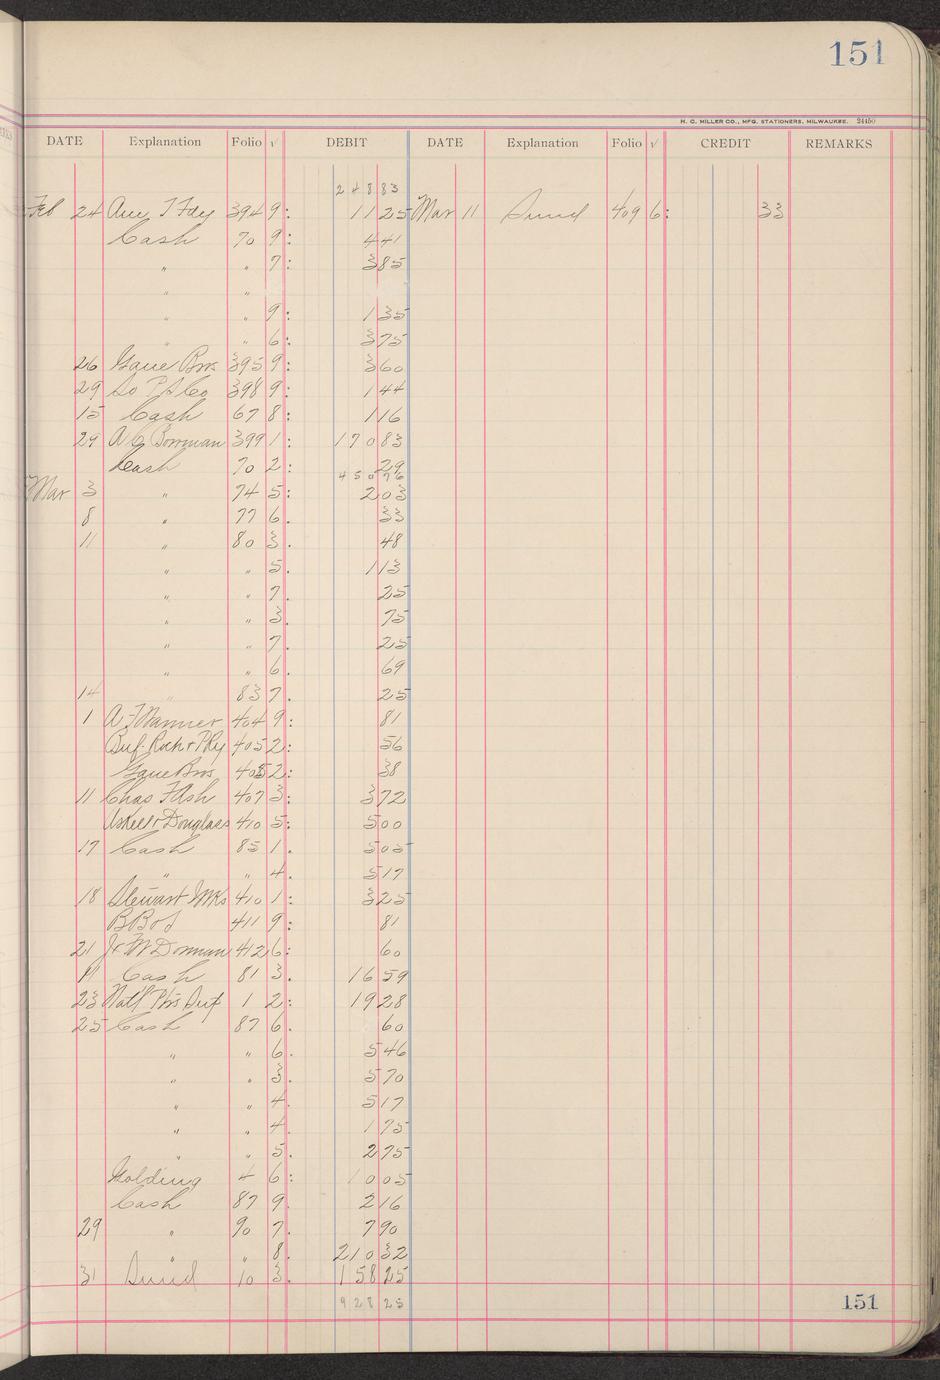 151
H. C. MILLER CO., MFG. STATIONERS, MILWAUKEE. 24450
DATE Explanation Folio √ DEBIT DATE Explanation Folio √ CREDIT REMARKS
248 83
Feb 24 Am T Fdy 394 9: 11 25 Mar 11 Sund 409 6: 33
Cash 70 9: 4 41
" " 7: 3 85
" "
" " 9: 1 35
" " 6: 3 75
26 Gane Bros 395 9: 3 60
29 So P S Co 398 9: 1 44
15 Cash 67 8: 1 16
29 A C Bowman 399 1: 170 83
Cash 70 2: 29
450 76
Mar 3 " 74 5: 2 03
8 " 77 6. 33
11 " 80 3. 48
" " 5. 1 13
" " 7. 25
" " 3. 75
" " 7. 25
" " 6. 69
14 " 83 7. 25
1 A F Wanner 404 9: 81
Buf. Roch & P Ry 405 2: 56
Gane Bros 405 2: 38
11 Chas F Ash 407 3: 3 72
& Douglass 410 5: 5 00
17 Cash 85 1. 5 05
" " 4. 5 17
18 Stewart 410 1: 3 25
411 9: 81
21 Jr W Dorman 412 6: 60
11 Cash 81 3. 16 59
23 Nat'l 1 2: 19 28
25 Cash 87 6. 60
" " 6. 5 46
" " 3. 5 70
" " 4. 5 17
" " 4. 1 75
" " 5. 2 75
Golding 4 6: 10 05
Cash 87 9. 2 16
29 " 90 7. 7 90
" " 8. 210 32
31 Sund 10 3. 158 25
928 25
151